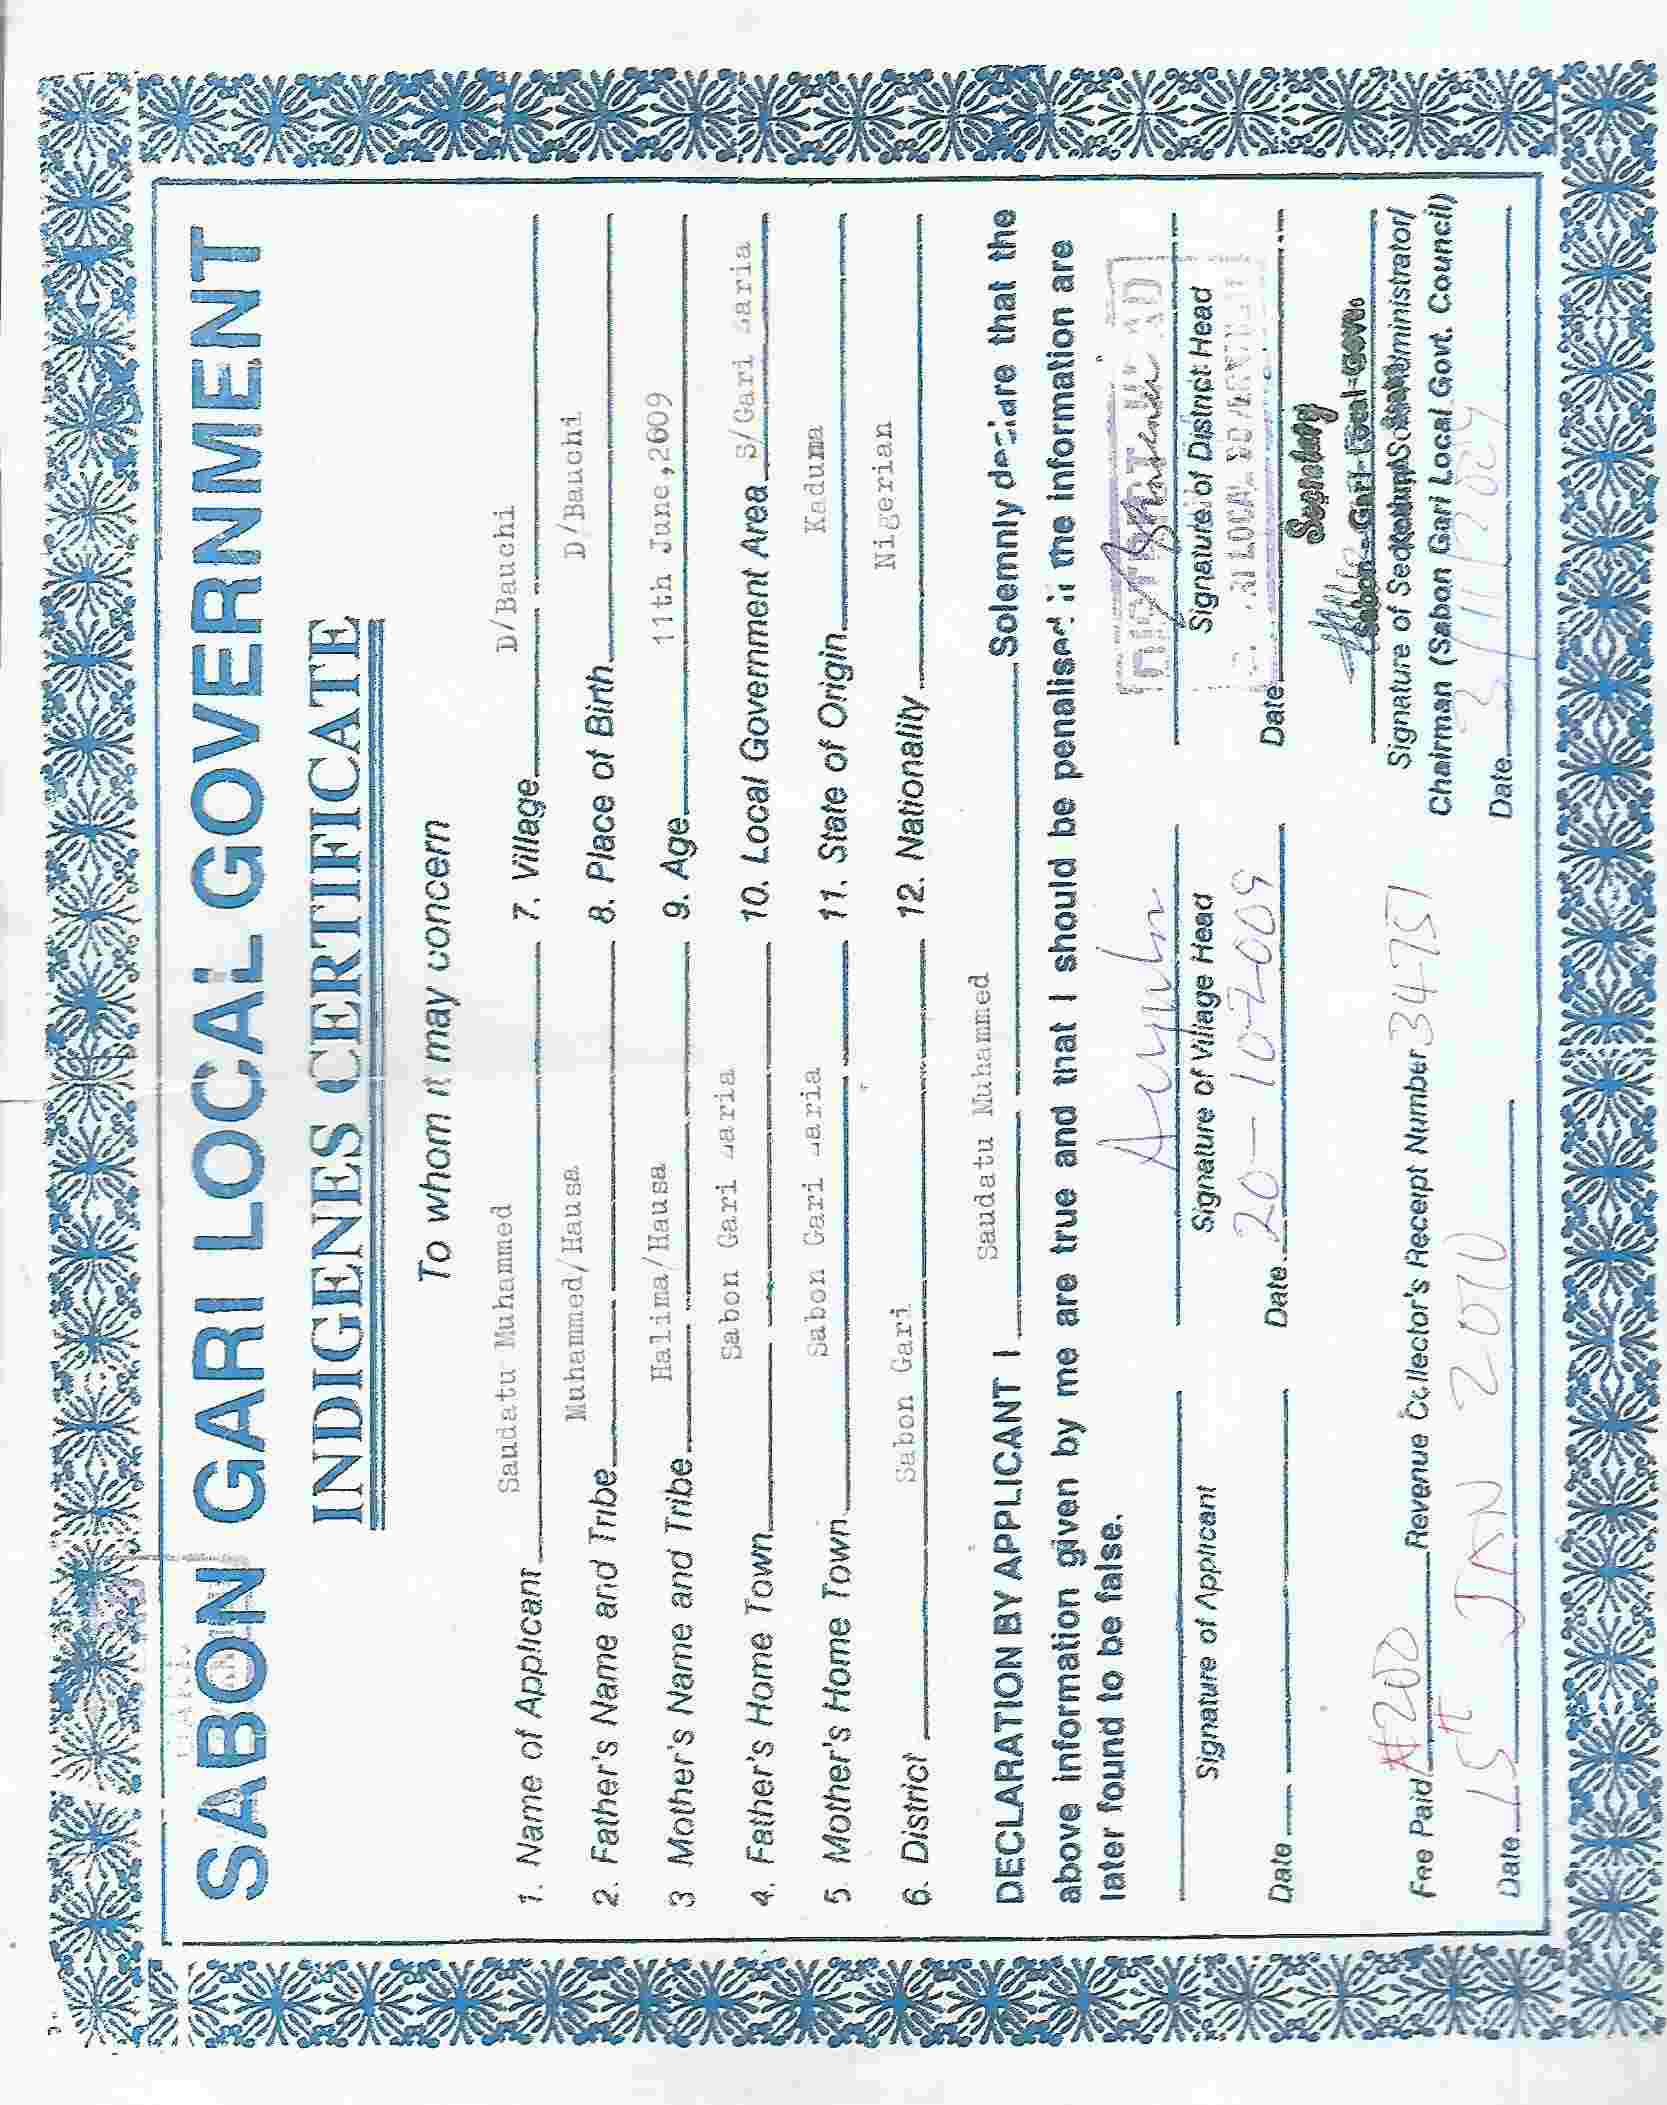 SABON GARI LOCAL GOVERNMENT
INDIGENES CERTIFICATE
To whom it may concern
1. Name of Applicant Saudatu Muhammed
2. Father's Name and Tribe Muhammed/Hausa
3 Mother's Name and Tribe Halima/Hausa
4. Father's Home Town Sabon Gari Zaria
5. Mother's Home Town Sabon Gari Zaria
6. District Sabon Gari
7. Village D/Bauchi
8. Place of Birth D/Bauchi
9. Age 11th June,2009
10. Local Government Area S/Gari Zaria
11. State of Origin Kaduma
12. Nationality Nigerian
DECLARATION BY APPLICANT I Saudatu Muhammed Solemnly declare that the
above information given by me are true and that I should be penalised if the information are
later found to be false.
Signature of Applicant
Date
Signature of Village Head
Date 20-10-2009
DISTRICT HEAD
Signature of District Head
LOCAL GOVERNMENT
Date
Secretary
Sabon-Gari Local Govt.
Signature of Secretary/Sole Administrator/
Chairman (Sabon Gari Local Govt. Council)
Date
Fee Paid ₦200 Revenue Collector's Receipt Number 34751
Date 15th JAN 2010